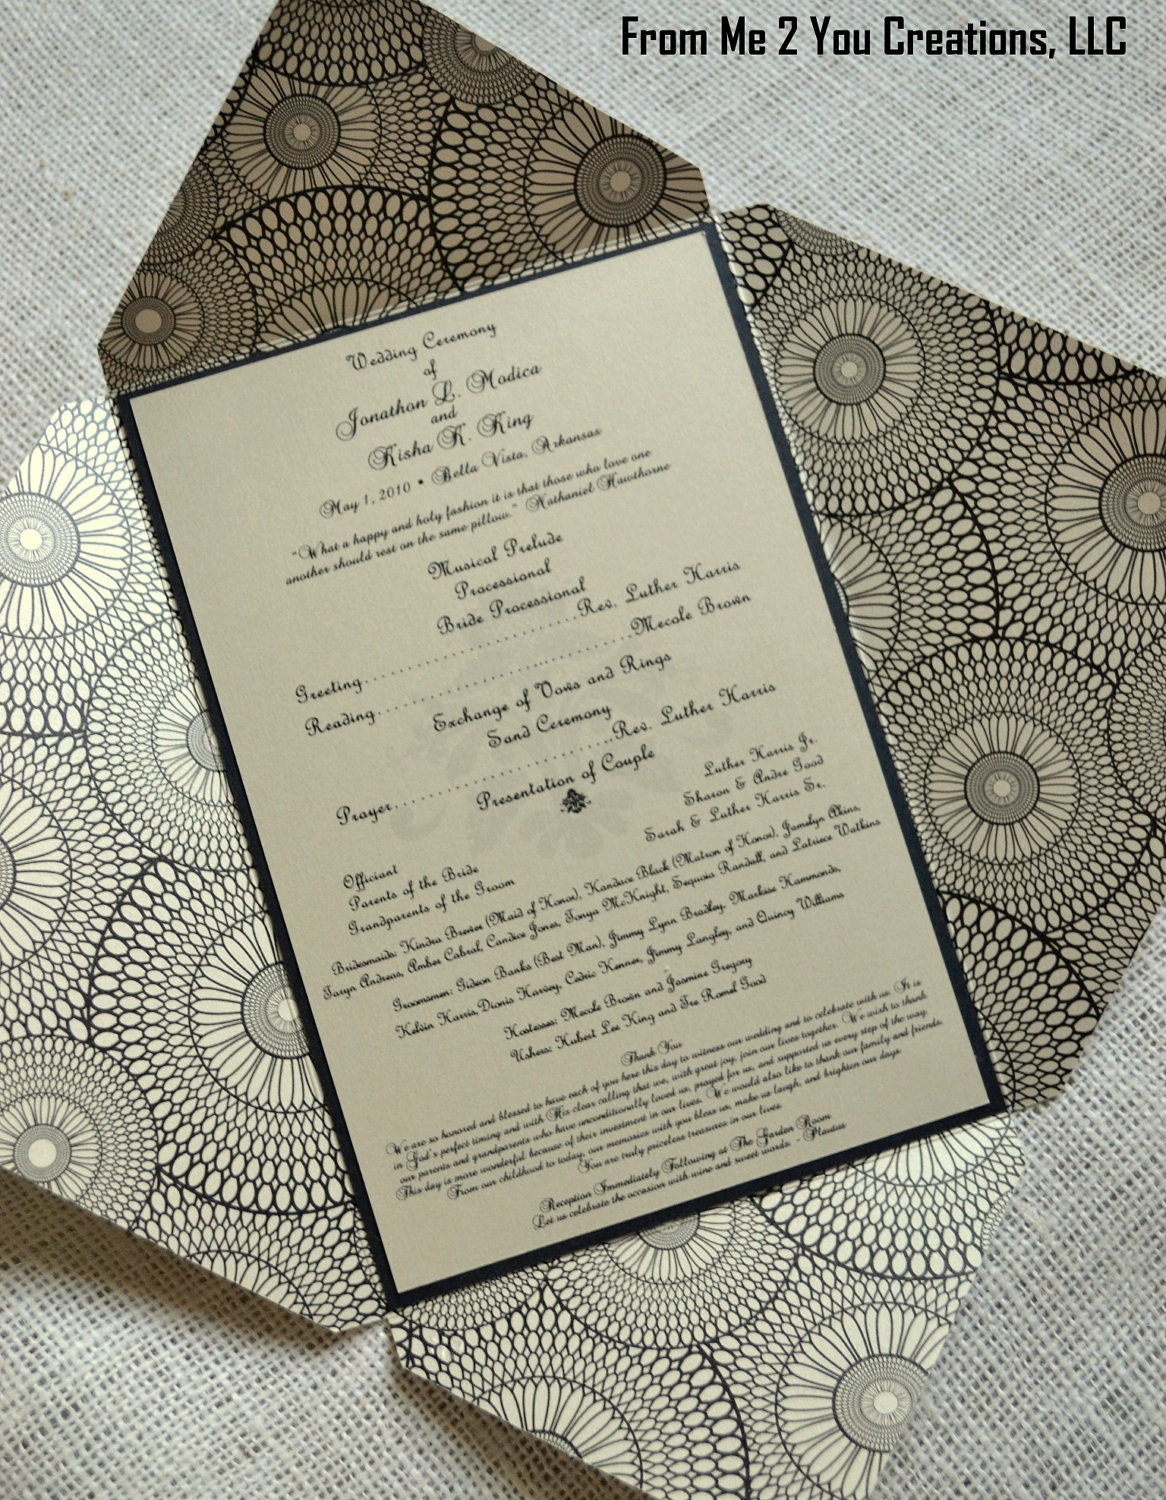 From Me 2 You Creations, LLC
Wedding Ceremony
of
Jonathon L. Modica
and
Kisha K. King
May 1, 2010 • Bella Vista, Arkansas
"What a happy and holy fashion it is that those who love one
another should rest on the same pillow." Nathaniel Hawthorne
Musical Prelude
Processional
Bride Processional
Greeting.............................Rev. Luther Harris
Reading.............................Mecole Brown
Exchange of Vows and Rings
Sand Ceremony
Prayer.............................Rev. Luther Harris
Presentation of Couple
Officiant Luther Harris Jr.
Parents of the Bride Sharon & Andre Good
Grandparents of the Groom Sarah & Luther Harris Sr.
Bridesmaids: Kindra Brewer (Maid of Honor), Kandace Black (Matron of Honor), Jamelyn Akins,
Taryn Andreas, Amber Cabral, Candice Jones, Tonya McKnight, Sequoia Randall, and Latriece Watkins
Groomsmen: Gideon Banks (Best Man), Jimmy Lynn Bradley, Markise Hammonds,
Kelvin Harris, Dionis Harvey, Cedric Kenner, Jimmy Langley, and Quincy Williams
Hostesses: Mecole Brown and Jasmine Gregory
Ushers: Hubert Lee King and Tre Romel Good
Thank You
We are so honored and blessed to have each of you here this day to witness our wedding and to celebrate with us. It is
in God's perfect timing and with His clear calling that we, with great joy, join our lives together. We wish to thank
our parents and grandparents who have unconditionally loved us, prayed for us, and supported us every step of the way.
This day is more wonderful because of their investment in our lives. We would also like to thank our family and friends.
From our childhood to today, our memories with you bless us, make us laugh, and brighten our days.
You are truly priceless treasures in our lives.
Reception Immediately Following at The Garden Room
Let us celebrate the occasion with wine and sweet words. - Plautus